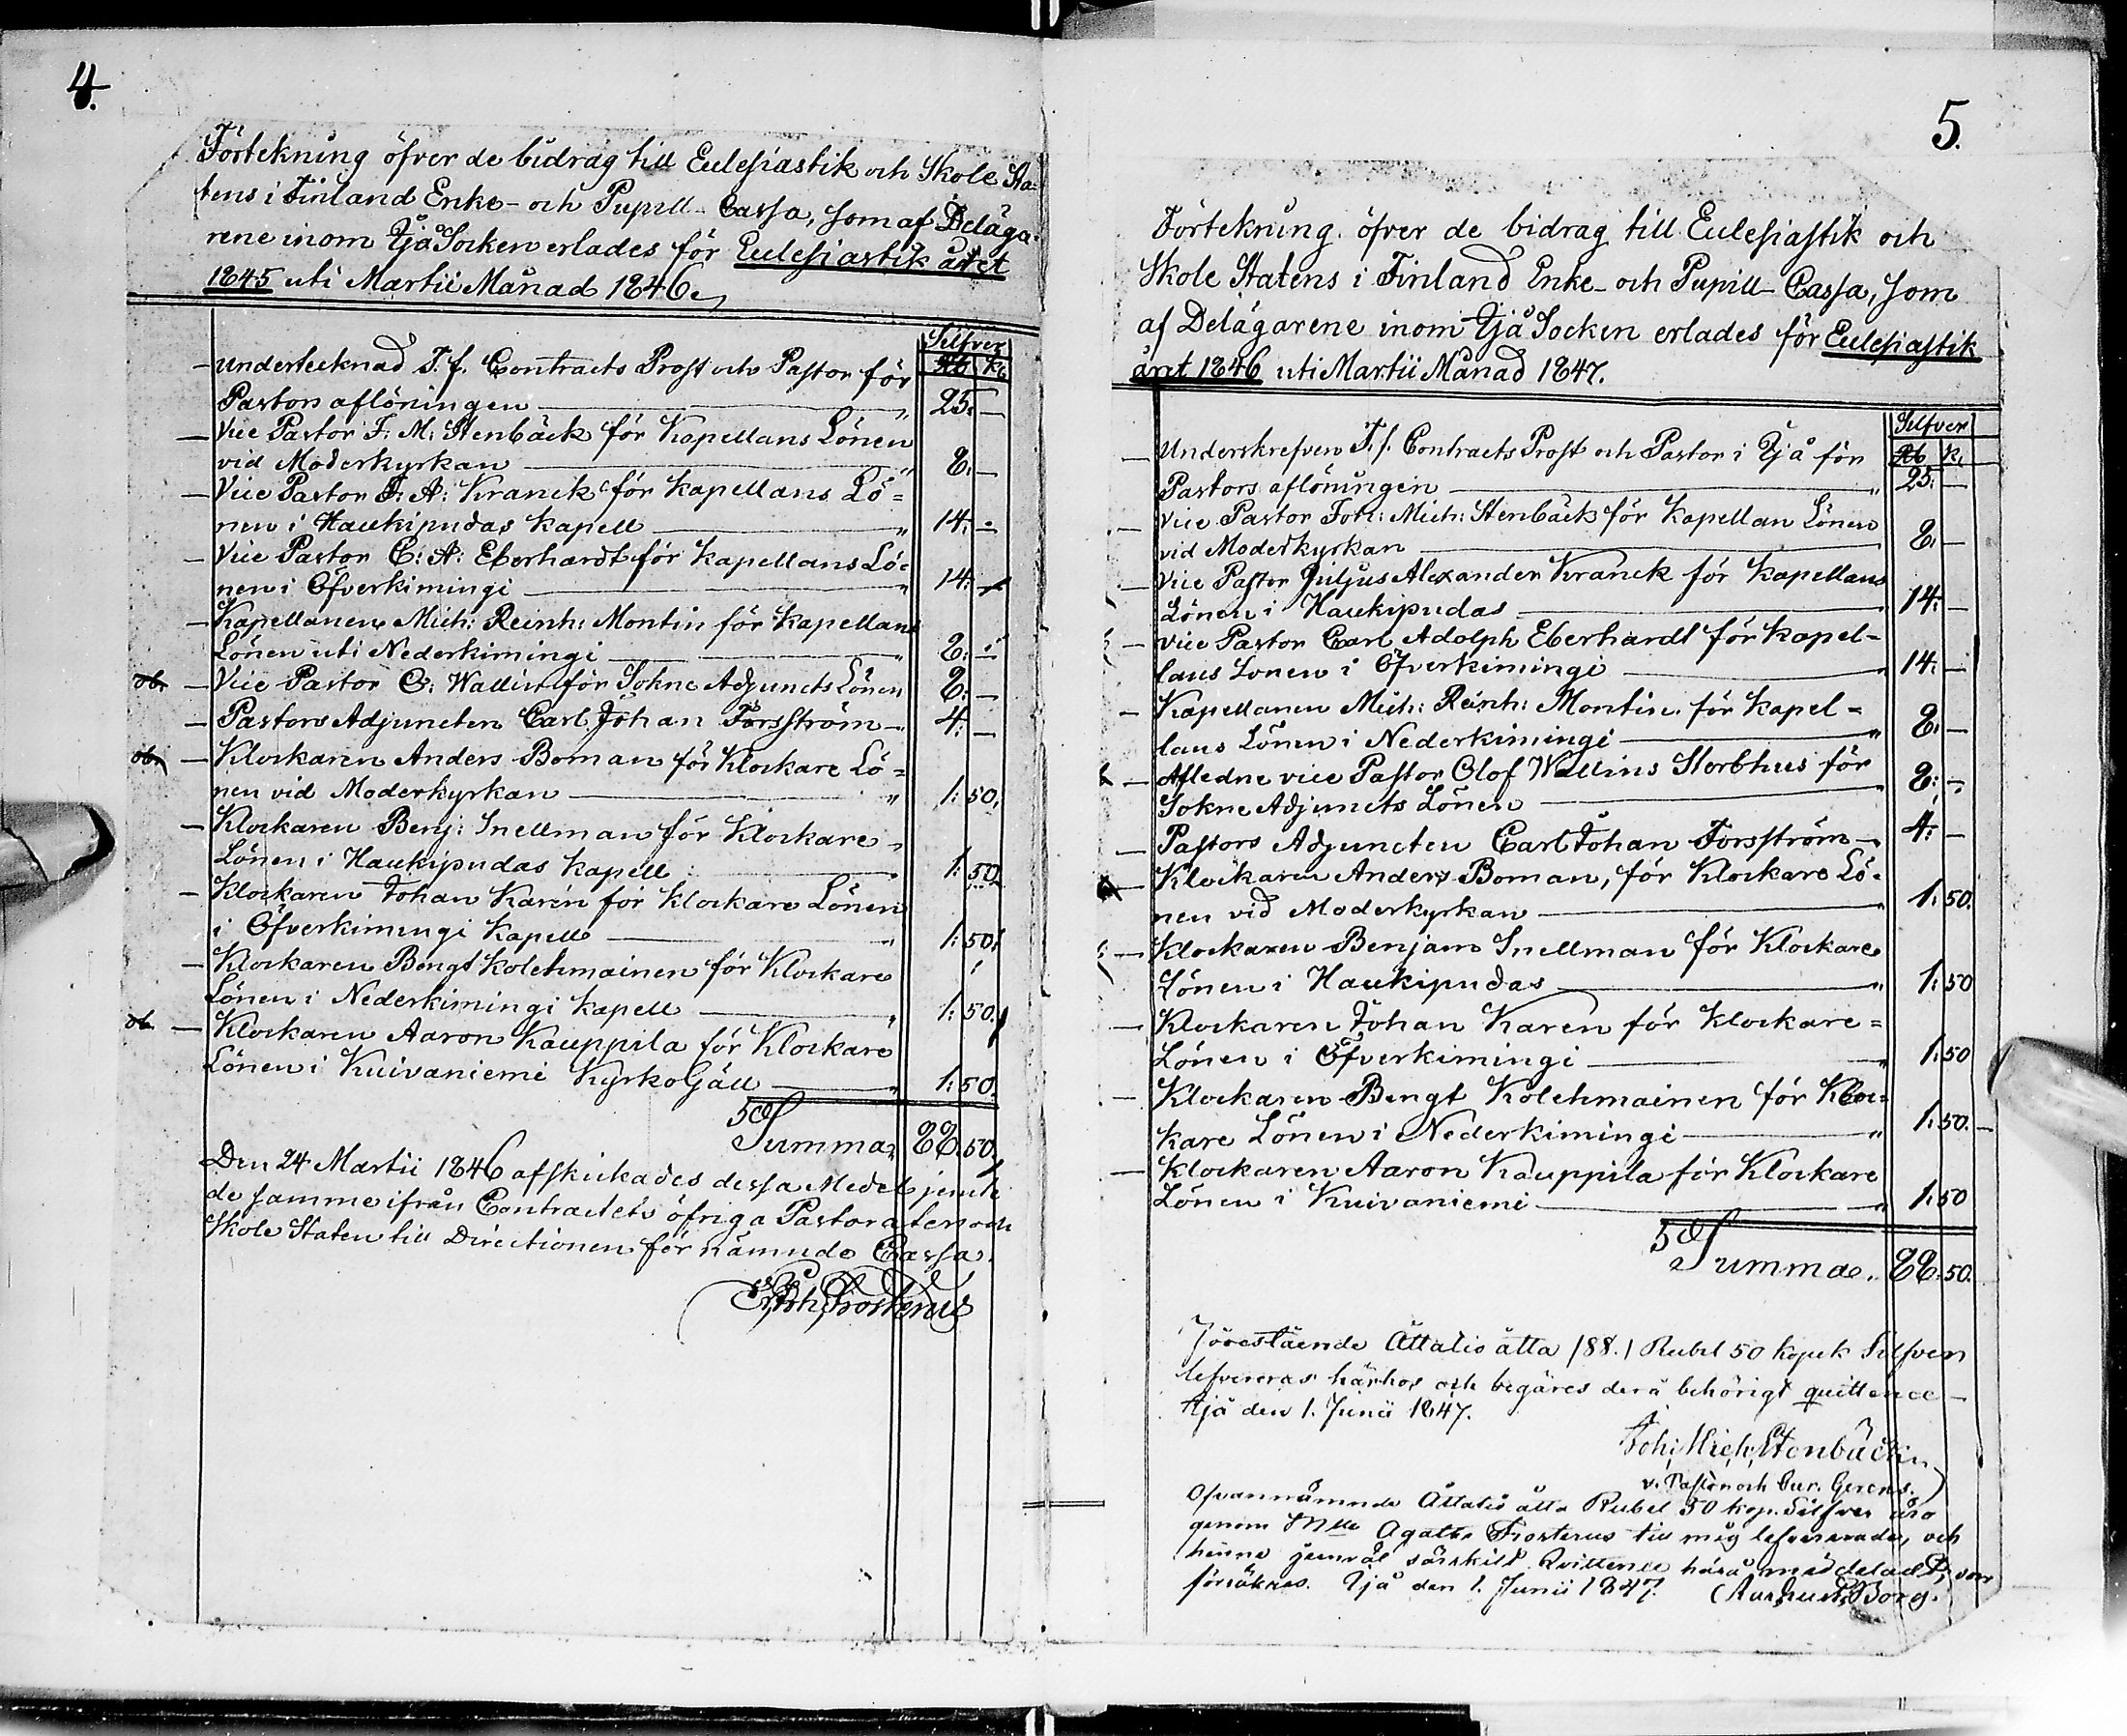 4.
Förtekning öfver de bidrag till Ecclesiastik och Skole Sta-
tens i Finland Enke- och Pupill-Cassa, som af Deläga-
rene inom Ijå Socken erlades för Ecclesiastik året
1845 uti Martii Månad 1846.
Silfver
Rb K.
— Undertecknad T. f. Contracts Prost och Pastor för
Pastors aflöningen — " 25. —
— Vice Pastor J: M: Stenbäck för Kapellans Lönen
vid Moderkyrkan — " 8. —
— Vice Pastor J: A: Kranck för Kapellans Lö=
nen i Haukipudas Kapell — " 14. —
— Vice Pastor C: A: Eberhardt för Kapellans Lö=
nen i Öfverkimingi — " 14. —
— Kapellanen Mich: Reinh: Montin för Kapellans
Lönen uti Nederkimingi — " 8. —
ob. — Vice Pastor O: Wallin för Sokne Adjuncts Lönen 8. —
— Pastors Adjuncten Carl Johan Forsström — 4. —
ob. — Klockaren Anders Boman för Klockare Lö=
nen vid Moderkyrkan — " 1: 50.
— Klockaren Benj: Snellman för Klockare
Lönen i Haukipudas Kapell — " 1: 50.
— Klockaren Johan Karén för Klockare Lönen
i Öfverkimingi Kapell — " 1: 50.
— Klockaren Bengt Kolehmainen för Klockare
Lönen i Nederkimingi Kapell — " 1: 50.
ob. — Klockaren Aaron Kauppila för Klockare
Lönen i Kuivaniemi Kyrko Gäll — " 1: 50.
Summa 88. 50.
Den 24 Martii 1846 afskickades dessa Medel jemte
de samme ifrån Contractets öfriga Pastorater och
Skole Staten till Directionen för nämnde Cassa.
Frosterus
5.
Förtekning öfver de bidrag till Ecclesiastik och
Skole Statens i Finland Enke- och Pupill-Cassa, som
af Delägarene inom Ijå Socken erlades för Ecclesiastik
året 1846 uti Martii Månad 1847.
Silfver
Rb K.
— Underskrefven T. f. Contracts Prost och Pastor i Ijå för
Pastors aflöningen — " 25. —
— Vice Pastor Joh: Mich: Stenbäck för Kapellan Lönen
vid Moderkyrkan — 8. —
— Vice Pastor Julius Alexander Kranck för Kapellans
Lönen i Haukipudas — " 14. —
— Vice Pastor Carl Adolph Eberhardt för Kapel-
lans Lönen i Öfverkimingi — " 14. —
— Kapellanen Mich: Reinh: Montin för Kapel=
lans Lönen i Nederkimingi — " 8. —
— Afledne vice Pastor Olof Wallins Sterbhus för
Sokne Adjuncts Lönen — 8. —
— Pastors Adjuncten Carl Johan Forsström — 4. —
— Klockaren Anders Boman, för Klockare Lö=
nen vid Moderkyrkan — " 1: 50.
— Klockaren Benjam Snellman för Klockare
Lönen i Haukipudas — " 1: 50
— Klockaren Johan Karén för Klockare=
Lönen i Öfverkimingi — " 1: 50
— Klockaren Bengt Kolehmainen för Kloc=
kare Lönen i Nederkimingi — " 1: 50. —
— Klockaren Aaron Kauppila för Klockare
Lönen i Kuivaniemi — " 1: 50
Summa. 88. 50.
Förestående Åttatio åtta (88.) Rubel 50 kopek Silfver
lefvereras härhos och begäres derå behörigt quittence —
Ijå den 1. Junii 1847.
Joh: Mich: Stenbäck
v. Pastor och Cur. Gerens.
Ofvannämnde Åttatio åtta Rubel 50 kop. Silfver äro
genom Mlle Agatha Frosterus till mig lefvererade, och
henne jemväl särskildt Quittence härå meddeladt, som
försäkras. Ijå den 1. Junii 1847. August Borg.